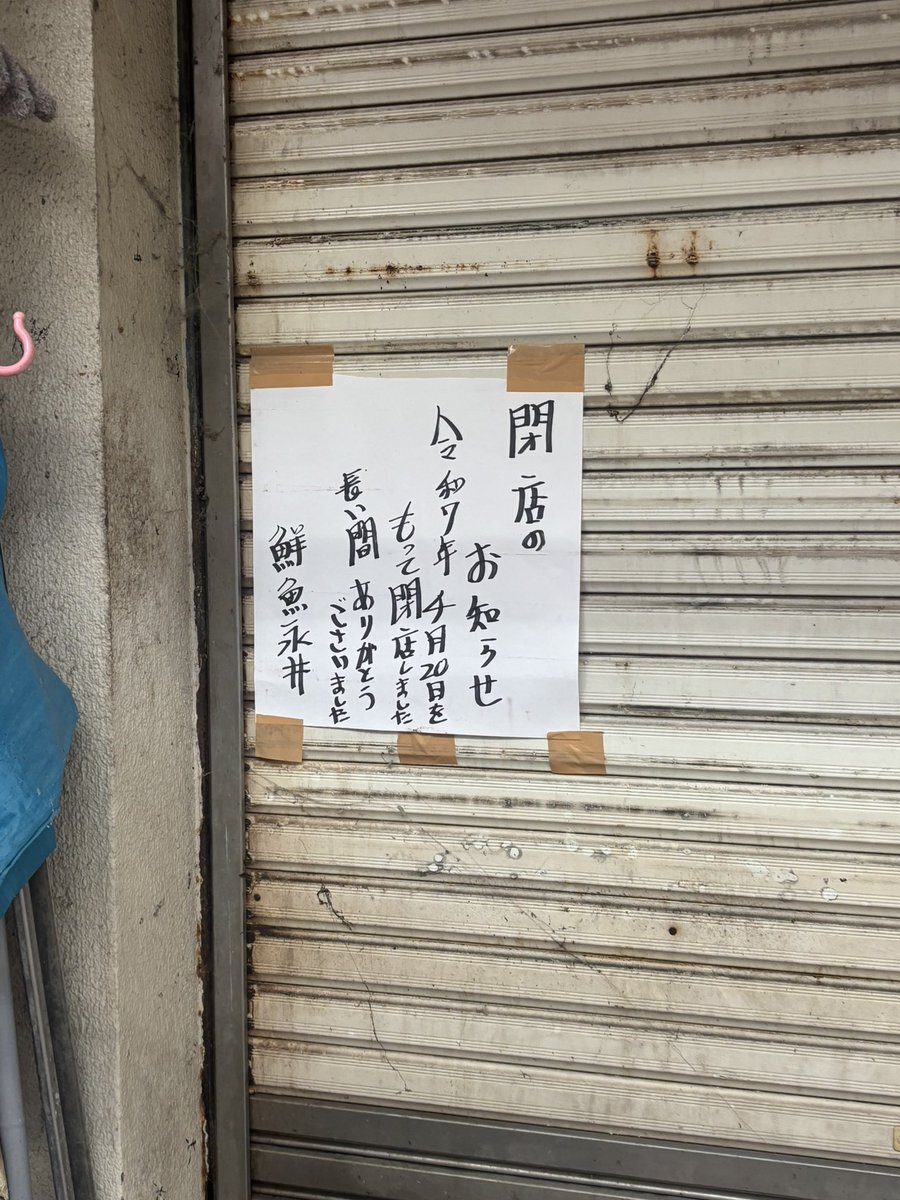 閉店の
お知らせ
令和7年 4月20日を
もって閉店しました
長い間 ありがとう
ございました
鮮魚永井